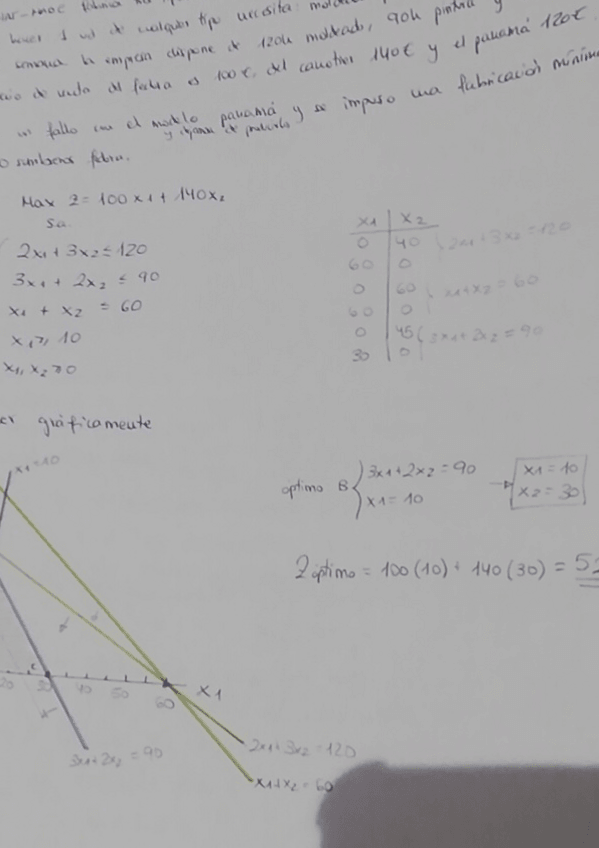 hacer 1 ud de cualquier tipo necesita:
semana la empresa dispone de 120h moldeado, 90h pintura y
de venta del fedra es 100€, del canotier 140€ y el panamá 120€.
un fallo con el modelo panamá y se impuso una fabricación mínima
y dejaron de producirlo
sombreros fedra.
Max Z = 100x1 + 140x2
s.a.
2x1 + 3x2 ≤ 120
3x1 + 2x2 ≤ 90
x1 + x2 ≤ 60
x1 ≥ 10
x1, x2 ≥ 0
x1 x2
0 40
60 0
2x1 + 3x2 = 120
0 60
60 0
x1+x2 = 60
0 45
30 0
3x1 + 2x2 = 90
gráficamente
x1 = 10
optimo B { 3x1 + 2x2 = 90
x1 = 10
x1 = 10
x2 = 30
Z óptimo = 100(10) + 140(30) =
20 30 40 50 60 x1
3x1+2x2 = 90
2x1+3x2 = 120
x1+x2 = 60